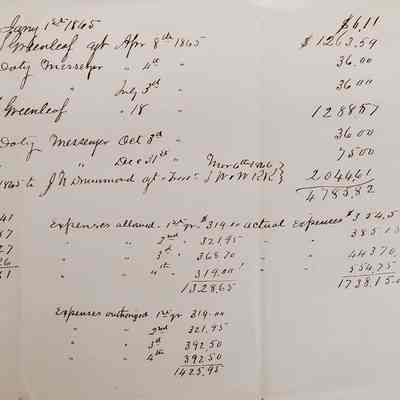 Jany 1st 1865 $6.11
Greenleaf agt Apr 8th 1865 $1263.59
Doty Messenger " 4th " 36.00
" July 3rd " 36.00
Greenleaf " 18 " 1288.57
Doty Messenger Oct 3rd " 36.00
" " Dec 31st " 75.00
1865 to J N Drummond agt Nov 6th 1866 } 2044.61
4785.82
41 Expenses allowed - 1st qr. $319.00 actual expenses $354.5
87 " " 2nd " 321.95 " " 385.15
27 " " 3d " 368.70 " " 443.70
26 " " 4th " 319.00 " " 554.75
51 1328.65 1738.15
Expenses 1st qr 319.00
" " 2nd 321.95
" " 3d 392.50
" " 4th 392.50
1425.95